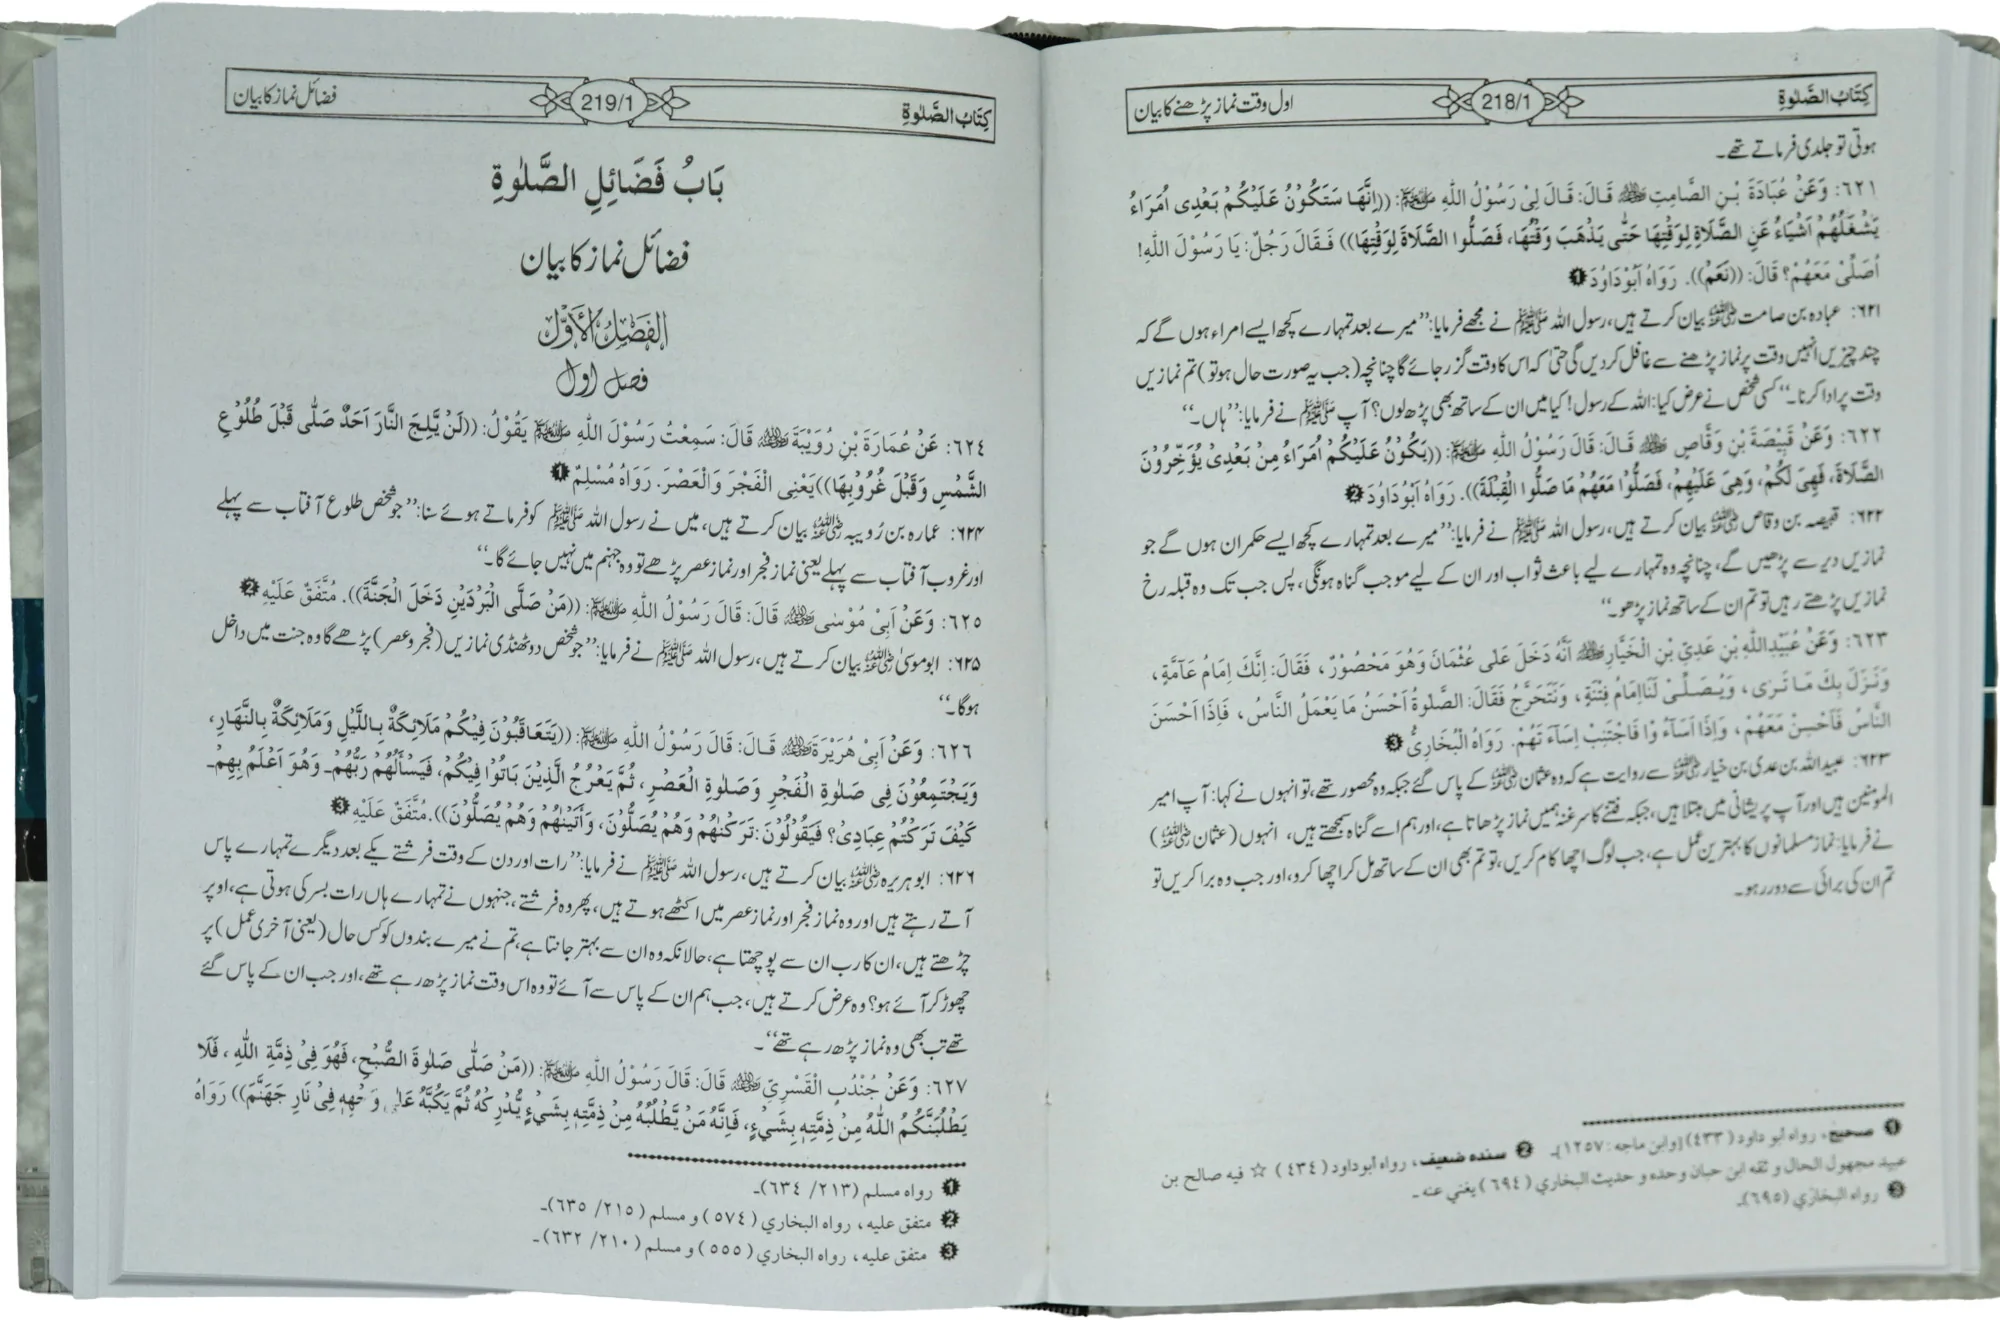 کِتَابُ الصَّلٰوۃِ 218/1 اول وقت نماز پڑھنے کا بیان
ہوتی تو جلدی فرماتے تھے۔
٦٢١: وَعَنْ عُبَادَةَ بْنِ الصَّامِتِ ﷜ قَالَ: قَالَ لِیْ رَسُوْلُ اللّٰهِ ﷺ: ((اِنَّهَا سَتَكُوْنُ عَلَيْكُمْ بَعْدِی اُمَرَاءُ
يَشْغَلُهُمْ اَشْيَاءُ عَنِ الصَّلَاةِ لِوَقْتِهَا حَتّٰى يَذْهَبَ وَقْتُهَا، فَصَلُّوا الصَّلَاةَ لِوَقْتِهَا)) فَقَالَ رَجُلٌ: يَا رَسُوْلَ اللّٰهِ!
اُصَلِّیْ مَعَهُمْ؟ قَالَ: ((نَعَمْ)). رَوَاهُ اَبُوْدَاوٗدَ ❶
۶۲۱: عبادہ بن صامت ﷜ بیان کرتے ہیں، رسول اللہ ﷺ نے مجھے فرمایا: ’’میرے بعد تمہارے کچھ ایسے امراء ہوں گے کہ
چند چیزیں انہیں وقت پر نماز پڑھنے سے غافل کر دیں گی حتیٰ کہ اس کا وقت گزر جائے گا چنانچہ (جب یہ صورت حال ہو تو) تم نمازیں
وقت پر ادا کرنا۔‘‘ کسی شخص نے عرض کیا: اللہ کے رسول! کیا میں ان کے ساتھ بھی پڑھ لوں؟ آپ ﷺ نے فرمایا: ’’ہاں۔‘‘
٦٢٢: وَعَنْ قَبِيْصَةَ بْنِ وَقَّاصٍ ﷜ قَالَ: قَالَ رَسُوْلُ اللّٰهِ ﷺ: ((يَكُوْنُ عَلَيْكُمْ اُمَرَاءُ مِنْ بَعْدِیْ يُؤَخِّرُوْنَ
الصَّلَاةَ، فَهِیَ لَكُمْ، وَهِیَ عَلَيْهِمْ، فَصَلُّوْا مَعَهُمْ مَا صَلُّوا الْقِبْلَةَ)). رَوَاهُ اَبُوْدَاوٗدَ ❷
۶۲۲: قبیصہ بن وقاص ﷜ بیان کرتے ہیں، رسول اللہ ﷺ نے فرمایا: ’’میرے بعد تمہارے کچھ ایسے حکمران ہوں گے جو
نمازیں دیر سے پڑھیں گے، چنانچہ وہ تمہارے لیے باعث ثواب اور ان کے لیے موجب گناہ ہونگی، پس جب تک وہ قبلہ رخ
نمازیں پڑھتے رہیں تو تم ان کے ساتھ نماز پڑھو۔‘‘
٦٢٣: وَعَنْ عُبَيْدِاللّٰهِ بْنِ عَدِیِّ بْنِ الْخَيَّارِ ﷜ اَنَّهُ دَخَلَ عَلٰى عُثْمَانَ وَهُوَ مَحْصُوْرٌ، فَقَالَ: اِنَّكَ اِمَامُ عَآمَّةٍ،
وَنَزَلَ بِكَ مَا تَرٰى، وَيُصَلِّیْ لَنَا اِمَامُ فِتْنَةٍ، وَنَتَحَرَّجُ فَقَالَ: الصَّلٰوةُ اَحْسَنُ مَا يَعْمَلُ النَّاسُ، فَاِذَا اَحْسَنَ
النَّاسُ فَاَحْسِنْ مَعَهُمْ، وَاِذَا اَسَآءُ وْا فَاجْتَنِبْ اِسَآءَ تَهُمْ. رَوَاهُ الْبُخَارِیُّ ❸
۶۲۳: عبیداللہ بن عدی بن خیار ﷜ سے روایت ہے کہ وہ عثمان ﷜ کے پاس گئے جبکہ وہ محصور تھے، تو انہوں نے کہا: آپ امیر
المومنین ہیں اور آپ پریشانی میں مبتلا ہیں، جبکہ فتنے کا سرغنہ ہمیں نماز پڑھاتا ہے، اور ہم اسے گناہ سمجھتے ہیں، انہوں (عثمان ﷜)
نے فرمایا: نماز مسلمانوں کا بہترین عمل ہے، جب لوگ اچھا کام کریں، تو تم بھی ان کے ساتھ مل کر اچھا کرو، اور جب وہ برا کریں تو
تم ان کی برائی سے دور رہو۔
❶ صحیح، رواه أبو داود (٤٣٣) [وابن ماجه: ١٢٥٧]۔ ❷ سنده ضعيف، رواه أبوداود (٤٣٤) ☆ فيه صالح بن
عبيد مجهول الحال و ثقه ابن حبان وحده و حديث البخاري (٦٩٤) يغني عنه۔
❸ رواه البخاري (٦٩٥)۔
کِتَابُ الصَّلٰوۃِ 219/1 فضائل نماز کا بیان
بَابُ فَضَائِلِ الصَّلٰوةِ
فضائل نماز کا بیان
الفَصْلُ الأَوَّلُ
فصل اول
٦٢٤: عَنْ عُمَارَةَ بْنِ رُوَيْبَةَ ﷜ قَالَ: سَمِعْتُ رَسُوْلَ اللّٰهِ ﷺ يَقُوْلُ: ((لَنْ يَّلِجَ النَّارَ اَحَدٌ صَلّٰى قَبْلَ طُلُوْعِ
الشَّمْسِ وَقَبْلَ غُرُوْبِهَا)) يَعْنِی الْفَجْرَ وَالْعَصْرَ. رَوَاهُ مُسْلِمٌ ❶
۶۲۴: عمارہ بن رُویبہ ﷜ بیان کرتے ہیں، میں نے رسول اللہ ﷺ کو فرماتے ہوئے سنا: ’’جو شخص طلوع آفتاب سے پہلے
اور غروب آفتاب سے پہلے یعنی نماز فجر اور نماز عصر پڑھے تو وہ جہنم میں نہیں جائے گا۔‘‘
٦٢٥: وَعَنْ اَبِیْ مُوْسٰى ﷜ قَالَ: قَالَ رَسُوْلُ اللّٰهِ ﷺ: ((مَنْ صَلَّى الْبَرْدَيْنِ دَخَلَ الْجَنَّةَ)). مُتَّفَقٌ عَلَيْهِ ❷
۶۲۵: ابوموسیٰ ﷜ بیان کرتے ہیں، رسول اللہ ﷺ نے فرمایا: ’’جو شخص دو ٹھنڈی نمازیں (فجر و عصر) پڑھے گا وہ جنت میں داخل
ہوگا۔‘‘
٦٢٦: وَعَنْ اَبِیْ هُرَيْرَةَ ﷜ قَالَ: قَالَ رَسُوْلُ اللّٰهِ ﷺ: ((يَتَعَاقَبُوْنَ فِيْكُمْ مَلَائِكَةٌ بِاللَّيْلِ وَمَلَائِكَةٌ بِالنَّهَارِ،
وَيَجْتَمِعُوْنَ فِی صَلٰوةِ الْفَجْرِ وَصَلٰوةِ الْعَصْرِ، ثُمَّ يَعْرُجُ الَّذِيْنَ بَاتُوْا فِيْكُمْ، فَيَسْأَلُهُمْ رَبُّهُمْ۔ وَهُوَ اَعْلَمُ بِهِمْ۔
كَيْفَ تَرَكْتُمْ عِبَادِیْ؟ فَيَقُوْلُوْنَ: تَرَكْنٰهُمْ وَهُمْ يُصَلُّوْنَ، وَأَتَيْنٰهُمْ وَهُمْ يُصَلُّوْنَ)). مُتَّفَقٌ عَلَيْهِ ❸
۶۲۶: ابوہریرہ ﷜ بیان کرتے ہیں، رسول اللہ ﷺ نے فرمایا: ’’رات اور دن کے وقت فرشتے یکے بعد دیگرے تمہارے پاس
آتے رہتے ہیں اور وہ نماز فجر اور نماز عصر میں اکٹھے ہوتے ہیں، پھر وہ فرشتے، جنہوں نے تمہارے ہاں رات بسر کی ہوتی ہے، اوپر
چڑھتے ہیں، ان کا رب ان سے پوچھتا ہے، حالانکہ وہ ان سے بہتر جانتا ہے، تم نے میرے بندوں کو کس حال (یعنی آخری عمل) پر
چھوڑ کر آئے ہو؟ وہ عرض کرتے ہیں، جب ہم ان کے پاس سے آئے تو وہ اس وقت نماز پڑھ رہے تھے، اور جب ان کے پاس گئے
تھے تب بھی وہ نماز پڑھ رہے تھے‘‘۔
٦٢٧: وَعَنْ جُنْدُبٍ الْقَسْرِیِّ ﷜ قَالَ: قَالَ رَسُوْلُ اللّٰهِ ﷺ: ((مَنْ صَلّٰى صَلٰوةَ الصُّبْحِ، فَهُوَ فِیْ ذِمَّةِ اللّٰهِ، فَلَا
يَطْلُبَنَّكُمُ اللّٰهُ مِنْ ذِمَّتِهٖ بِشَیْءٍ، فَاِنَّهٗ مَنْ يَّطْلُبْهُ مِنْ ذِمَّتِهٖ بِشَیْءٍ يُّدْرِكْهُ ثُمَّ يَكُبُّهُ عَلٰى وَجْهِهٖ فِیْ نَارِ جَهَنَّمَ)) رَوَاهُ
❶ رواه مسلم (٢١٣/ ٦٣٤)۔
❷ متفق عليه، رواه البخاري (٥٧٤) و مسلم (٢١٥/ ٦٣٥)۔
❸ متفق عليه، رواه البخاري (٥٥٥) و مسلم (٢١٠/ ٦٣٢)۔